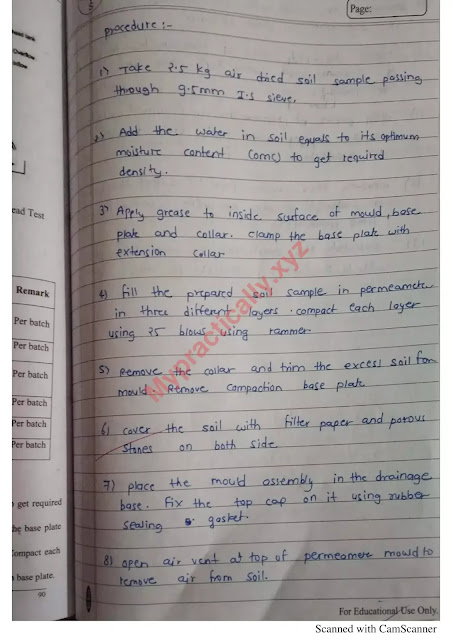 Page:
procedure :-
1) Take 2.5 kg air dried soil sample passing
through 9.5mm I.S sieve.
2) Add the water in soil equals to its optimum
moisture content (omc) to get required
density.
3) Apply grease to inside surface of mould, base
plate and collar. clamp the base plate with
extension collar
4) fill the prepared soil sample in permeamete
in three different layers. compact each layer
using 25 blows using rammer
5) Remove the collar and trim the excess soil from
mould. Remove compaction base plate
6) cover the soil with filter paper and porous
stones on both side
7) place the mould assembly in the drainage
base. Fix the top cap on it using rubber
sealing gasket.
8) open air vent at top of permeamere mould to
remove air from soil.
Mypractically.xyz
Overflow
ead Test
Remark
Per batch
Per batch
Per batch
Per batch
Per batch
Per batch
get required
he base plate
ompact each
base plate.
90
For Educational Use Only.
Scanned with CamScanner